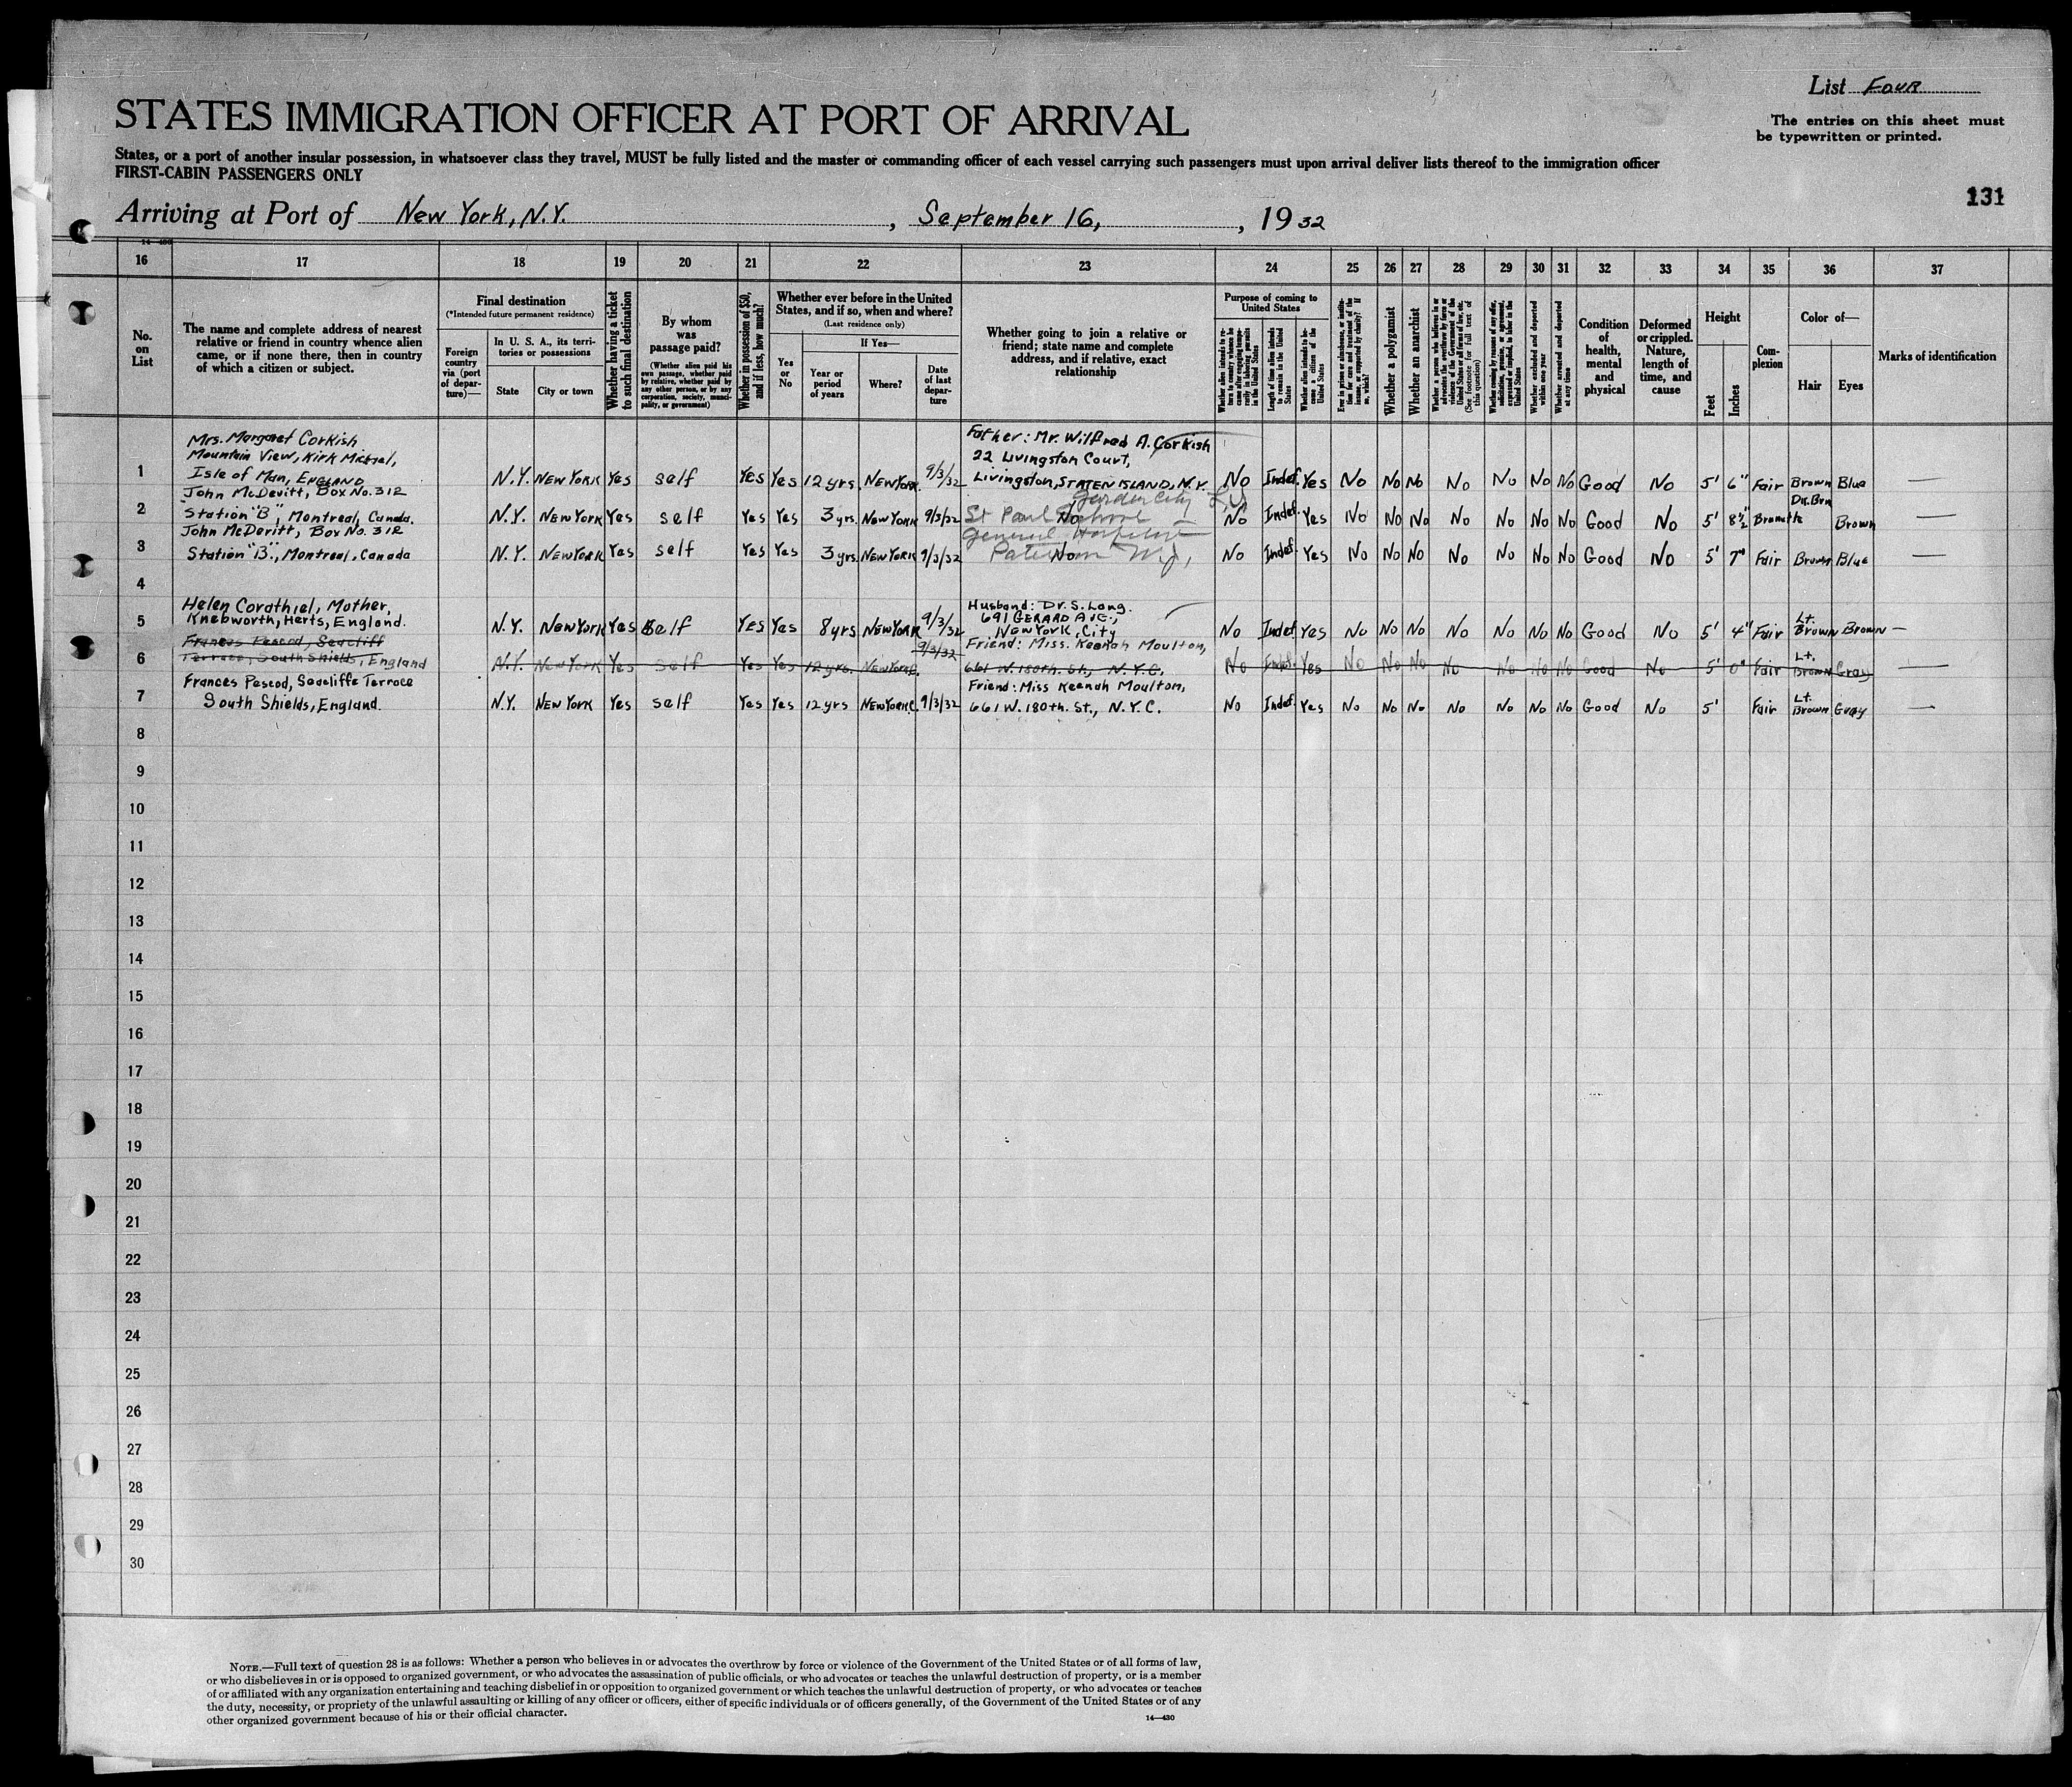 List FOUR
STATES IMMIGRATION OFFICER AT PORT OF ARRIVAL
The entries on this sheet must
be typewritten or printed.
States, or a port of another insular possession, in whatsoever class they travel, MUST be fully listed and the master or commanding officer of each vessel carrying such passengers must upon arrival deliver lists thereof to the immigration officer
FIRST-CABIN PASSENGERS ONLY
131
Arriving at Port of New York, N.Y., September 16, , 1932
16 17 18 19 20 21 22 23 24 25 26 27 28 29 30 31 32 33 34 35 36 37
No. on List
The name and complete address of nearest
relative or friend in country whence alien
came, or if none there, then in country
of which a citizen or subject.
Final destination
(*Intended future permanent residence)
Foreign country via (port of departure)—
In U. S. A., its territories or possessions
State
City or town
Whether having a ticket to such final destination
By whom was passage paid?
(Whether alien paid his own passage, whether paid by relative, whether paid by any other person, or by any corporation, society, municipality, or government)
Whether in possession of $50, and if less, how much?
Whether ever before in the United States, and if so, when and where?
(Last residence only)
Yes or No
If Yes—
Year or period of years
Where?
Date of last departure
Whether going to join a relative or
friend; state name and complete
address, and if relative, exact
relationship
Purpose of coming to United States
Whether alien intends to return to country whence he came after engaging temporarily in laboring pursuits in the United States
Length of time alien intends to remain in the United States
Whether alien intends to become a citizen of the United States
Ever in prison or almshouse, or institution for care and treatment of the insane, or supported by charity? If so, which?
Whether a polygamist
Whether an anarchist
Whether a person who believes in or advocates the overthrow by force or violence of the Government of the United States or all forms of law, etc. (See footnote for full text of this question)
Whether coming by reasons of any offer, solicitation, promise, or agreement, expressed or implied, to labor in the United States
Whether excluded and deported within one year
Whether arrested and deported at any time
Condition of health, mental and physical
Deformed or crippled. Nature, length of time, and cause
Height
Feet
Inches
Complexion
Color of—
Hair
Eyes
Marks of identification
Mrs. Margaret Corkish
Mountain View, Kirk Michael,
1 Isle of Man, ENGLAND N.Y. NEW YORK Yes self Yes Yes 12 yrs. NEW YORK 9/3/32
Father: Mr. Wilfred A. Corkish
22 Livingston Court,
Livingston, STATEN ISLAND, N.Y. No Indef. Yes No No No No No No No Good No 5' 6" Fair Brown Blue —
John McDevitt, Box No. 312
2 Station "B", Montreal, Canada. N.Y. NEW YORK Yes self Yes Yes 3 yrs. New York 9/3/32 No
Garden City L.I.
St Paul School
No Indef. Yes No No No No No No No Good No 5' 8½" Brunette Dk. Brn Brown —
John McDevitt, Box No. 312
3 Station "B", Montreal, Canada N.Y. NEW YORK Yes self Yes Yes 3 yrs. NEW YORK 9/3/32 No
General Hospital
Paterson N.J.
No Indef. Yes No No No No No No No Good No 5' 7" Fair Brown Blue —
4
Helen Corathiel, Mother,
5 Knebworth, Herts, England. N.Y. NEW YORK Yes Self Yes Yes 8 yrs NEW YORK 9/3/32
Husband: Dr. S. Long.
691 GERARD AVE.,
NEW YORK City
No Indef Yes No No No No No No No Good No 5' 4" Fair Lt. Brown Brown —
Frances Pescod, Seacliff
6 Terrace, South Shields, England N.Y. New York Yes self Yes Yes 12 yrs. NEW YORK 9/3/32
Friend: Miss. Keenah Moulton,
661 W. 180th. St., N.Y.C. No Indef. Yes No No No No No No No Good No 5' 0" Fair Lt. Brown Gray —
Frances Pescod, Seacliffe Terrace
7 South Shields, England. N.Y. NEW YORK Yes self Yes Yes 12 yrs NEW YORK. 9/3/32
Friend: Miss Keenah Moulton,
661 W. 180th. St., N.Y.C. No Indef. Yes No No No No No No No Good No 5' Fair Lt. Brown Gray —
8
9
10
11
12
13
14
15
16
17
18
19
20
21
22
23
24
25
26
27
28
29
30
NOTE.—Full text of question 28 is as follows: Whether a person who believes in or advocates the overthrow by force or violence of the Government of the United States or of all forms of law,
or who disbelieves in or is opposed to organized government, or who advocates the assassination of public officials, or who advocates or teaches the unlawful destruction of property, or is a member
of or affiliated with any organization entertaining and teaching disbelief in or opposition to organized government or which teaches the unlawful destruction of property, or who advocates or teaches
the duty, necessity, or propriety of the unlawful assaulting or killing of any officer or officers, either of specific individuals or of officers generally, of the Government of the United States or of any
other organized government because of his or their official character.
14—430